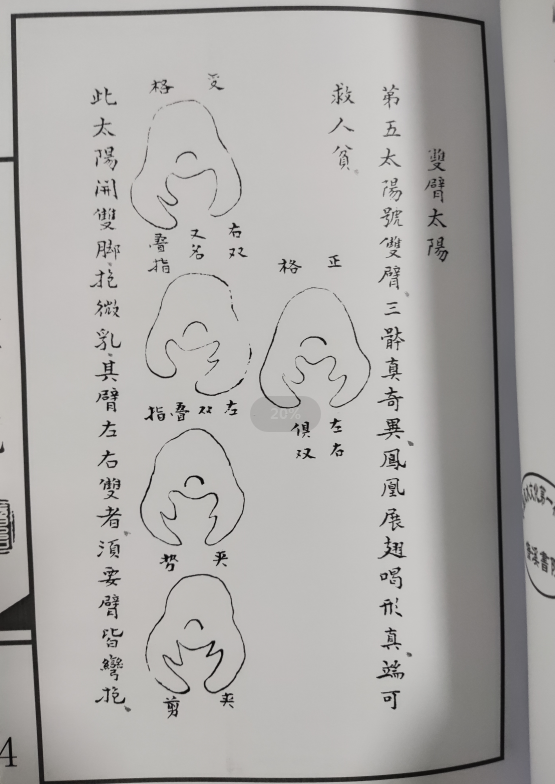 雙臂太陽
第五太陽號雙臂三骵真奇異鳳凰展翅喝形真端可
救人貧
正格
左右俱双
变格
右双
又名叠指
左双叠指
夾势
夾剪
此太陽開雙脚抱微乳其臂左右雙者須要臂皆彎抱
20%
4